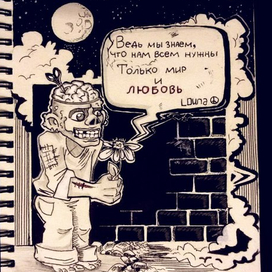 Ведь мы знаем,
что нам всем нужны
Только мир
и
любовь